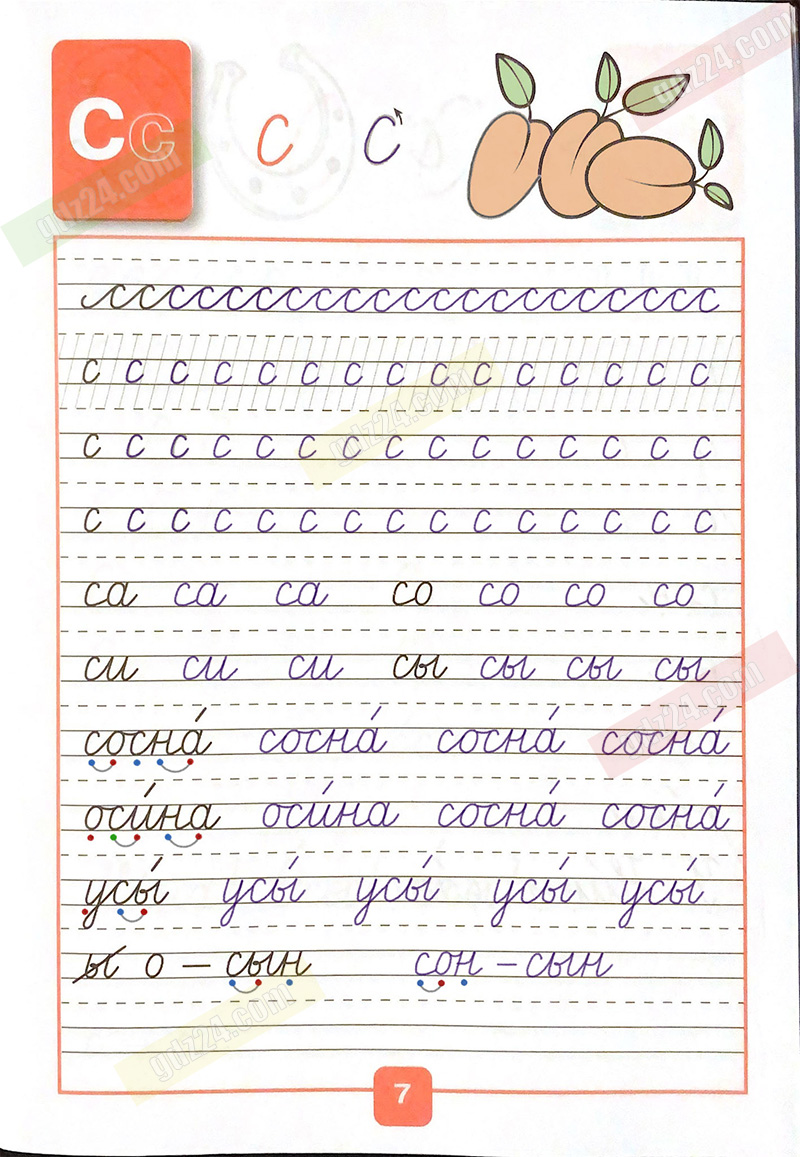 gdz24.com
Сс с с
gdz24.com
сссссссссссссссссссссс
с с с с с с с с с с с с с с с
gdz24.com
с с с с с с с с с с с с с с с
с с с с с с с с с с с с с с с
са са са со со со со
си си си сы сы сы сы
gdz24.com
сосна́ сосна́ сосна́ сосна́
оси́на оси́на сосна́ сосна́
усы́ усы́ усы́ усы́ усы́
ы о – сын сон – сын
gdz24.com
7